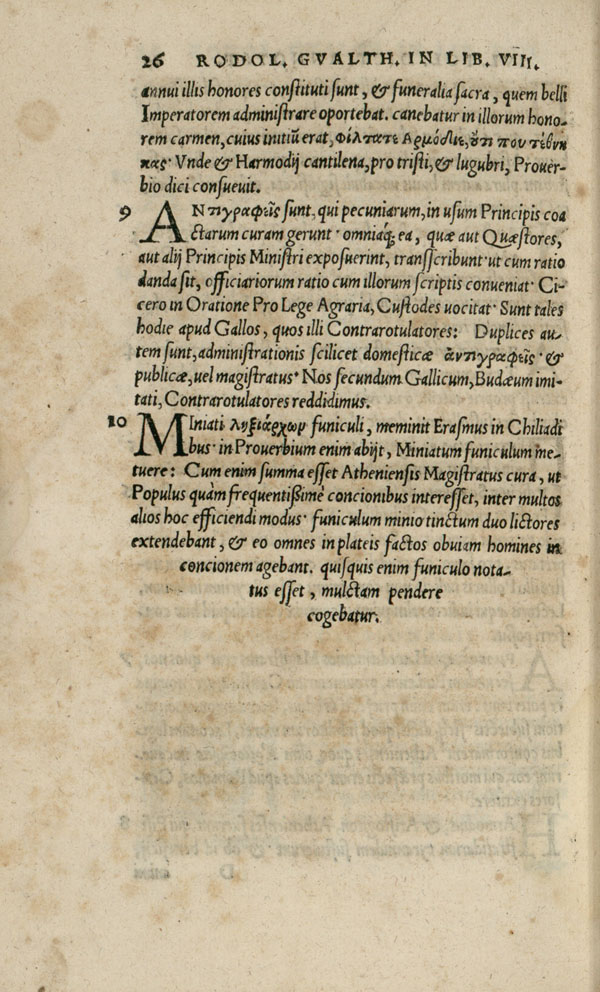 26 RODOL. GVALTH. IN LIB. VIII.
annui illis honores constituti sunt, & funeralia sacra, quem belli
Imperatorem administrare oportebat. canebatur in illorum hono-
rem carmen, cuius initiũ erat, φίλτατε Αρμόδιε, ὅτι που τέθνη
κας· Vnde & Harmodij cantilena, pro tristi, & lugubri, Prouer-
bio dici consueuit.
9 ANτιγραφεῖς sunt, qui pecuniarum, in usum Principis coa
ctarum curam gerunt· omniaq́; ea, quæ aut Quæstores,
aut alij Principis Ministri exposuerint, transscribunt· ut cum ratio
danda sit, officiariorum ratio cum illorum scriptis conueniat· Ci-
cero in Oratione Pro Lege Agraria, Custodes uocitat· Sunt tales
hodie apud Gallos, quos illi Contrarotulatores: Duplices au-
tem sunt, administrationis scilicet domesticæ ἀντιγραφεῖς· &
publicæ, uel magistratus· Nos secundum Gallicum, Budæum imi-
tati, Contrarotulatores reddidimus.
10 MIniati ληξιάρχων funiculi, meminit Erasmus in Chiliadi
bus· in Prouerbium enim abijt, Miniatum funiculum me-
tuere: Cum enim summa esset Atheniensis Magistratus cura, ut
Populus quàm frequentißimè concionibus interesset, inter multos
alios hoc efficiendi modus· funiculum minio tinctum duo lictores
extendebant, & eo omnes in plateis factos obuiam homines in
concionem agebant. quisquis enim funiculo nota-
tus esset, mulctam pendere
cogebatur.